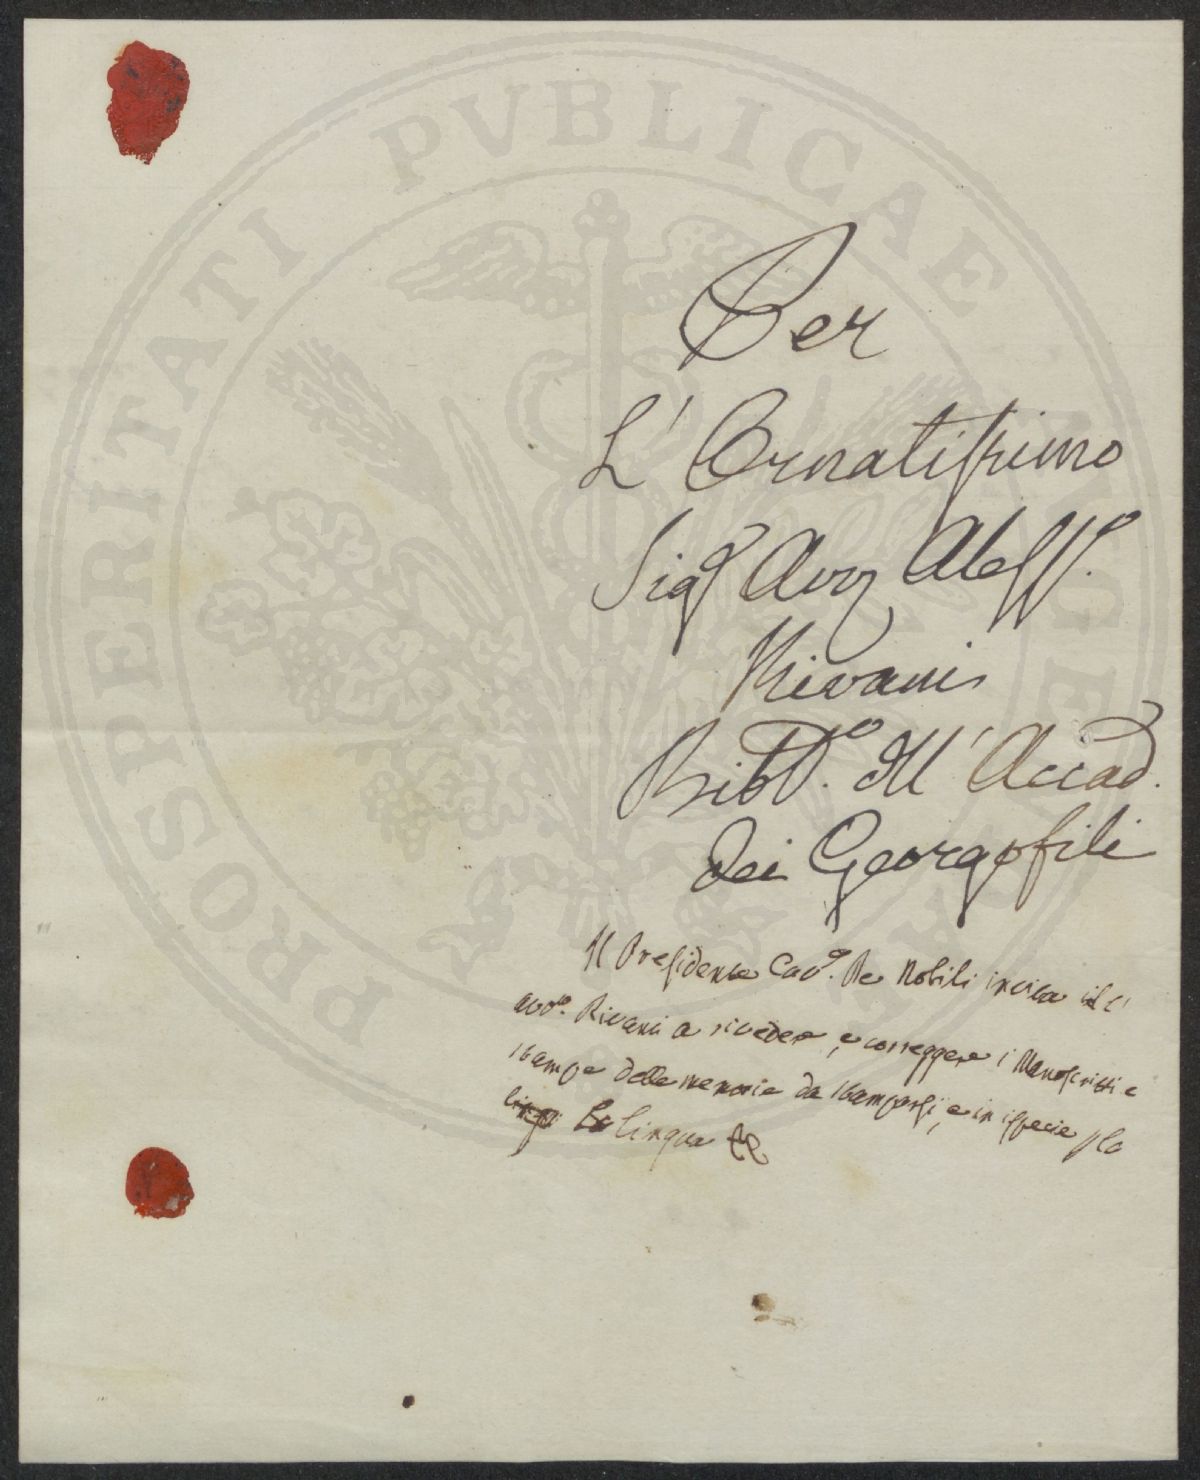 PROSPERITATI PVBLICAE AVGENDAE
Per
L' Ornatissimo
Sigr Avv Aless.o
Rivani
Bibl.o dell' Accad.
dei Georgofili
Il Presidente Cav.e De Nobili invita il l'
avv.o Rivani a rivedere, e correggere i Manoscritti e
stampe delle memorie da stamparsi, e in ispecie p la
lingua &c